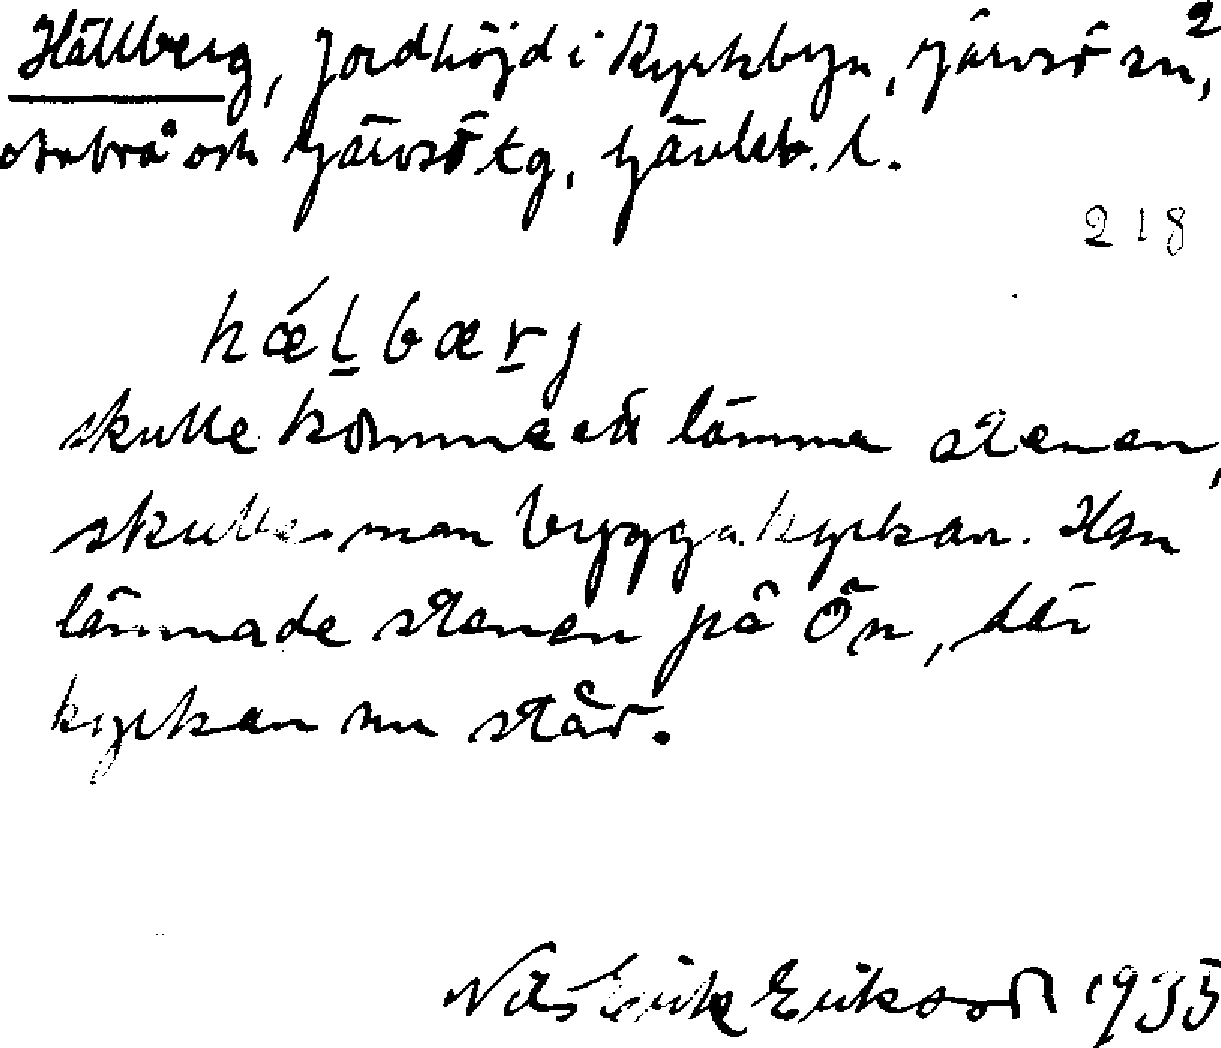 Hällberg, jordhöjd i Kyrkbyn, Järvsö sn, 2
Arbrå och Järvsö tg, Gävleb. l.
218
hǽl̲bær̲j
skulle komma att lämna stenen,
skulle man bygga kyrkan. Han
lämnade stenen på Ön, där
kyrkan nu står.
Nils Erik Eriksson 1935